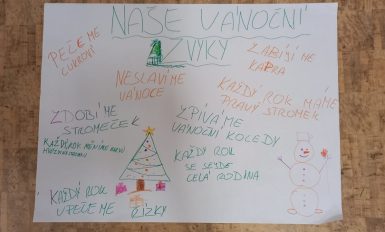 NAŠE VÁNOČNÍ
ZVYKY
PEČEME
CUKROVÍ
ZABÍJÍME
KAPRA
NESLAVÍME
VÁNOCE
KAŽDÝ ROK MÁME
PRAVÝ STROMEK
ZDOBÍME
STROMEČEK
KAŽDÝ ROK MĚNÍME BARVU
ZPÍVÁME
VÁNOČNÍ KOLEDY
KAŽDÝ ROK
SE SEJDE
CELÁ RODINA
KAŽDÝ ROK
UPEČEME
ŘÍZKY